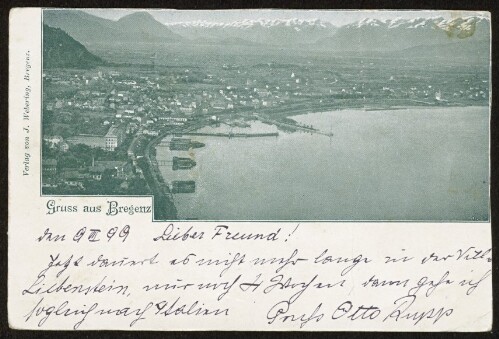 Verlag von J. Wehering, Bregenz.
Gruss aus Bregenz
den 9 III 99 Lieber Freund!
Jetzt dauert es nicht mehr lange in der Villa
Liebenstein, nur noch 4 Wochen, dann gehe ich
sogleich nach Italien Otto Rupp